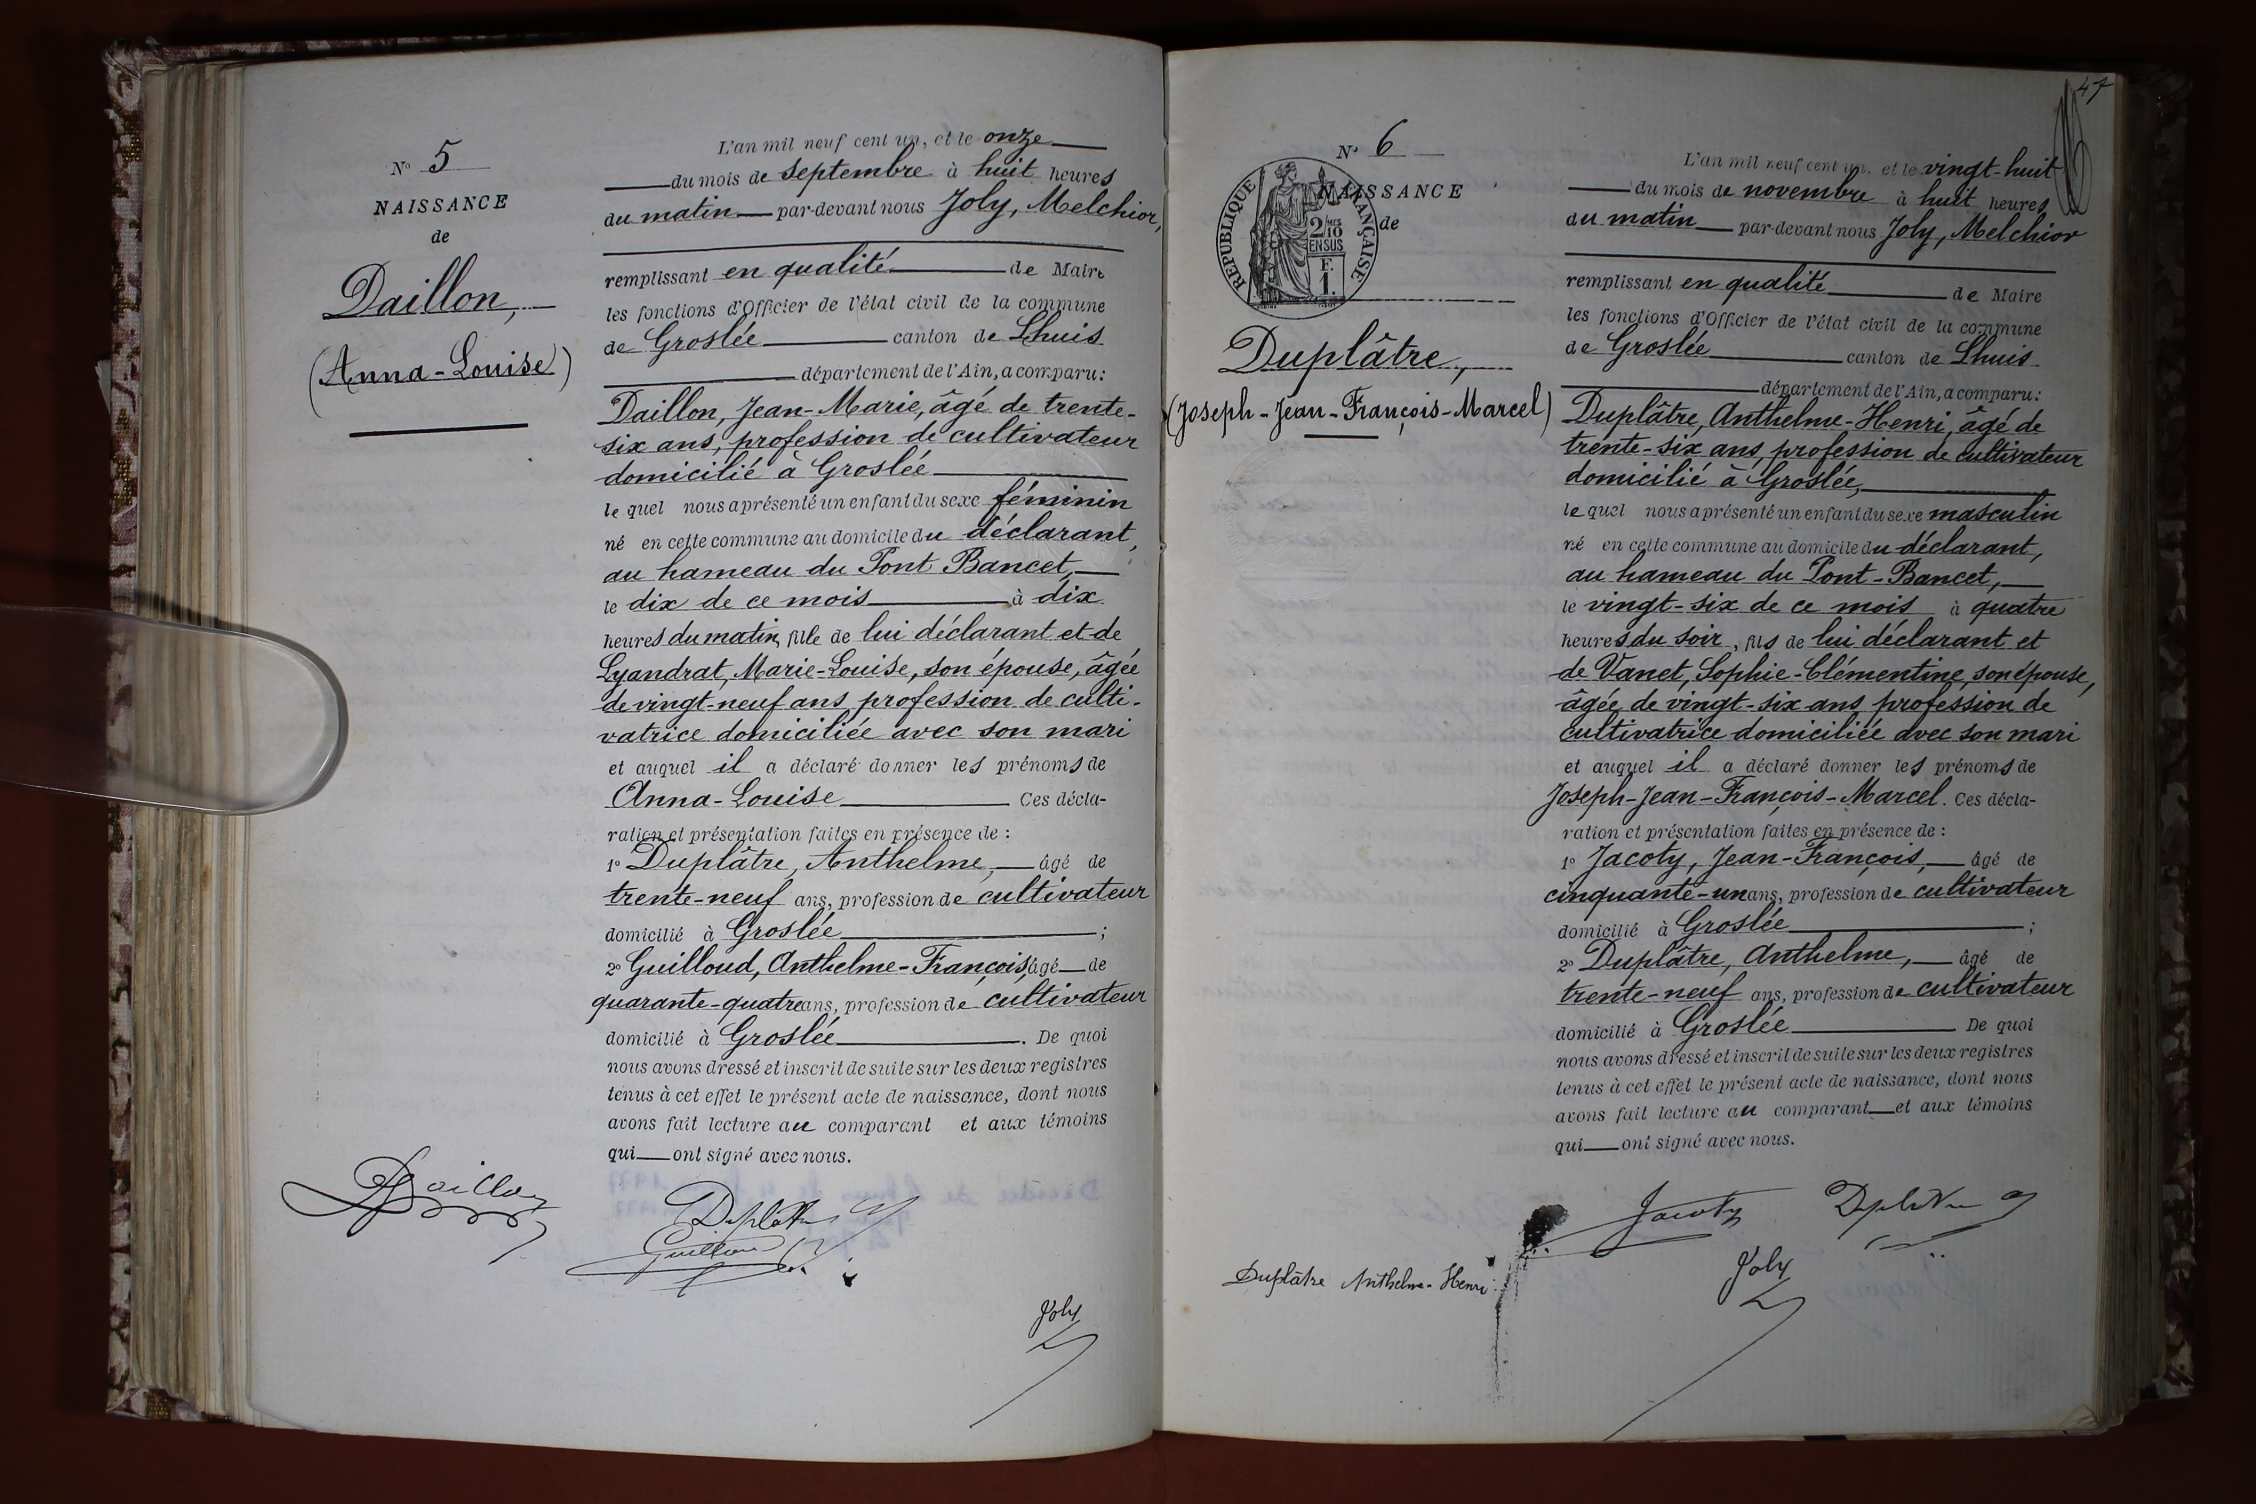 N° 5
NAISSANCE
de
Daillon,
(Anna-Louise)
L'an mil neuf cent un, et le onze
du mois de septembre à huit heures
du matin par-devant nous Joly, Melchior,
remplissant en qualité de Maire
les fonctions d'Officier de l'état civil de la commune
de Groslée canton de Lhuis
département de l'Ain, a comparu:
Daillon, Jean-Marie, âgé de trente-
six ans, profession de cultivateur
domicilié à Groslée
le quel nous a présenté un enfant du sexe féminin
né en cette commune au domicile du déclarant,
au hameau du Pont Bancet,
le dix de ce mois à dix
heures du matin, fille de lui déclarant et de
Lyandrat, Marie-Louise, son épouse, âgée
de vingt-neuf ans, profession de culti-
vatrice domiciliée avec son mari
et auquel il a déclaré donner les prénoms de
Anna-Louise Ces décla-
ration et présentation faites en présence de :
1° Duplâtre, Anthelme, âgé de
trente-neuf ans, profession de cultivateur
domicilié à Groslée ;
2° Guilloud, Anthelme-François, âgé de
quarante-quatre ans, profession de cultivateur
domicilié à Groslée . De quoi
nous avons dressé et inscrit de suite sur les deux registres
tenus à cet effet le présent acte de naissance, dont nous
avons fait lecture au comparant et aux témoins
qui ont signé avec nous.
Daillon
Duplâtre
Guilloud
Joly
47
N° 6
NAISSANCE
de
RÉPUBLIQUE FRANÇAISE
2/10
EN SUS
F.
1.
Duplâtre,
(Joseph-Jean-François-Marcel)
L'an mil neuf cent un, et le vingt-huit
du mois de novembre à huit heures
du matin par-devant nous Joly, Melchior
remplissant en qualité de Maire
les fonctions d'Officier de l'état civil de la commune
de Groslée canton de Lhuis
département de l'Ain, a comparu:
Duplâtre, Anthelme-Henri, âgé de
trente-six ans, profession de cultivateur
domicilié à Groslée,
le quel nous a présenté un enfant du sexe masculin
né en cette commune au domicile du déclarant,
au hameau du Pont-Bancet,
le vingt-six de ce mois à quatre
heures du soir, fils de lui déclarant et
de Vanet, Sophie-Clémentine, son épouse,
âgée de vingt-six ans, profession de
cultivatrice domiciliée avec son mari
et auquel il a déclaré donner les prénoms de
Joseph-Jean-François-Marcel. Ces décla-
ration et présentation faites en présence de :
1° Jacoty, Jean-François, âgé de
cinquante-un ans, profession de cultivateur
domicilié à Groslée ;
2° Duplâtre, Anthelme, âgé de
trente-neuf ans, profession de cultivateur
domicilié à Groslée De quoi
nous avons dressé et inscrit de suite sur les deux registres
tenus à cet effet le présent acte de naissance, dont nous
avons fait lecture au comparant et aux témoins
qui ont signé avec nous.
Jacoty Duplâtre
Duplâtre Anthelme-Henri
Joly